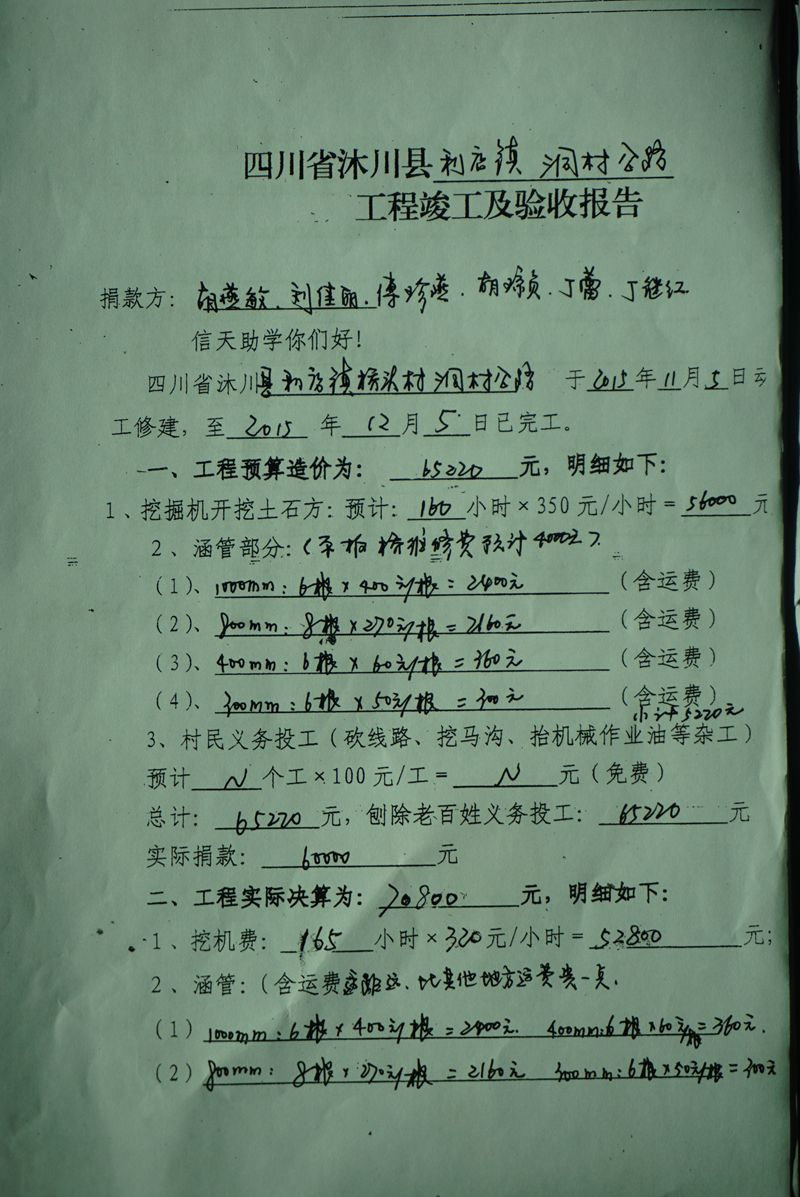 四川省沐川县利店镇 洞村公路
工程竣工及验收报告
捐款方：胡燕敏、刘佳丽、傅珍燕、胡婷贞、丁蕾、丁继红
信天助学你们好！
四川省沐川县利店镇桥头村洞村公路 于2015年11月5日动
工修建，至 2015 年 12月 5 日已完工。
一、工程预算造价为： 65220 元，明细如下：
1、挖掘机开挖土石方：预计：160 小时×350元/小时＝56000 元
2、涵管部分：（ 预计4000元）
（1）、1000mm：6根×400元/根＝2400元（含运费）
（2）、800mm：8根×270元/根＝2160元（含运费）
（3）、400mm：6根×60元/根＝360元（含运费）
（4）、300mm：6根×50元/根＝300元（含运费）
小计5220元
3、村民义务投工（砍线路、挖马沟、抬机械作业油等杂工）
预计 N 个工×100元/工＝ N 元（免费）
总计： 65220 元，刨除老百姓义务投工： 65220 元
实际捐款： 60000 元
二、工程实际决算为：70800 元，明细如下：
1、挖机费： 165 小时×320元/小时＝52800 元；
2、涵管：（含运费 距远、比其他地方运费贵一点.
（1）1000mm：6根×400元/根＝2400元. 400mm：6根×60元/根＝360元.
（2）800mm： 8根×270元/根＝2160元 300mm：6根×50元/根＝300元